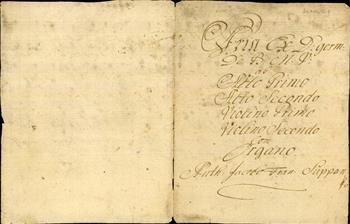 Aria Ex D. germ:
De B. M. V.
Alto Primo
Alto Secondo
Violino Primo
Violino Secondo
Con
Organo
Auth. Jacobo Fran. Suppan